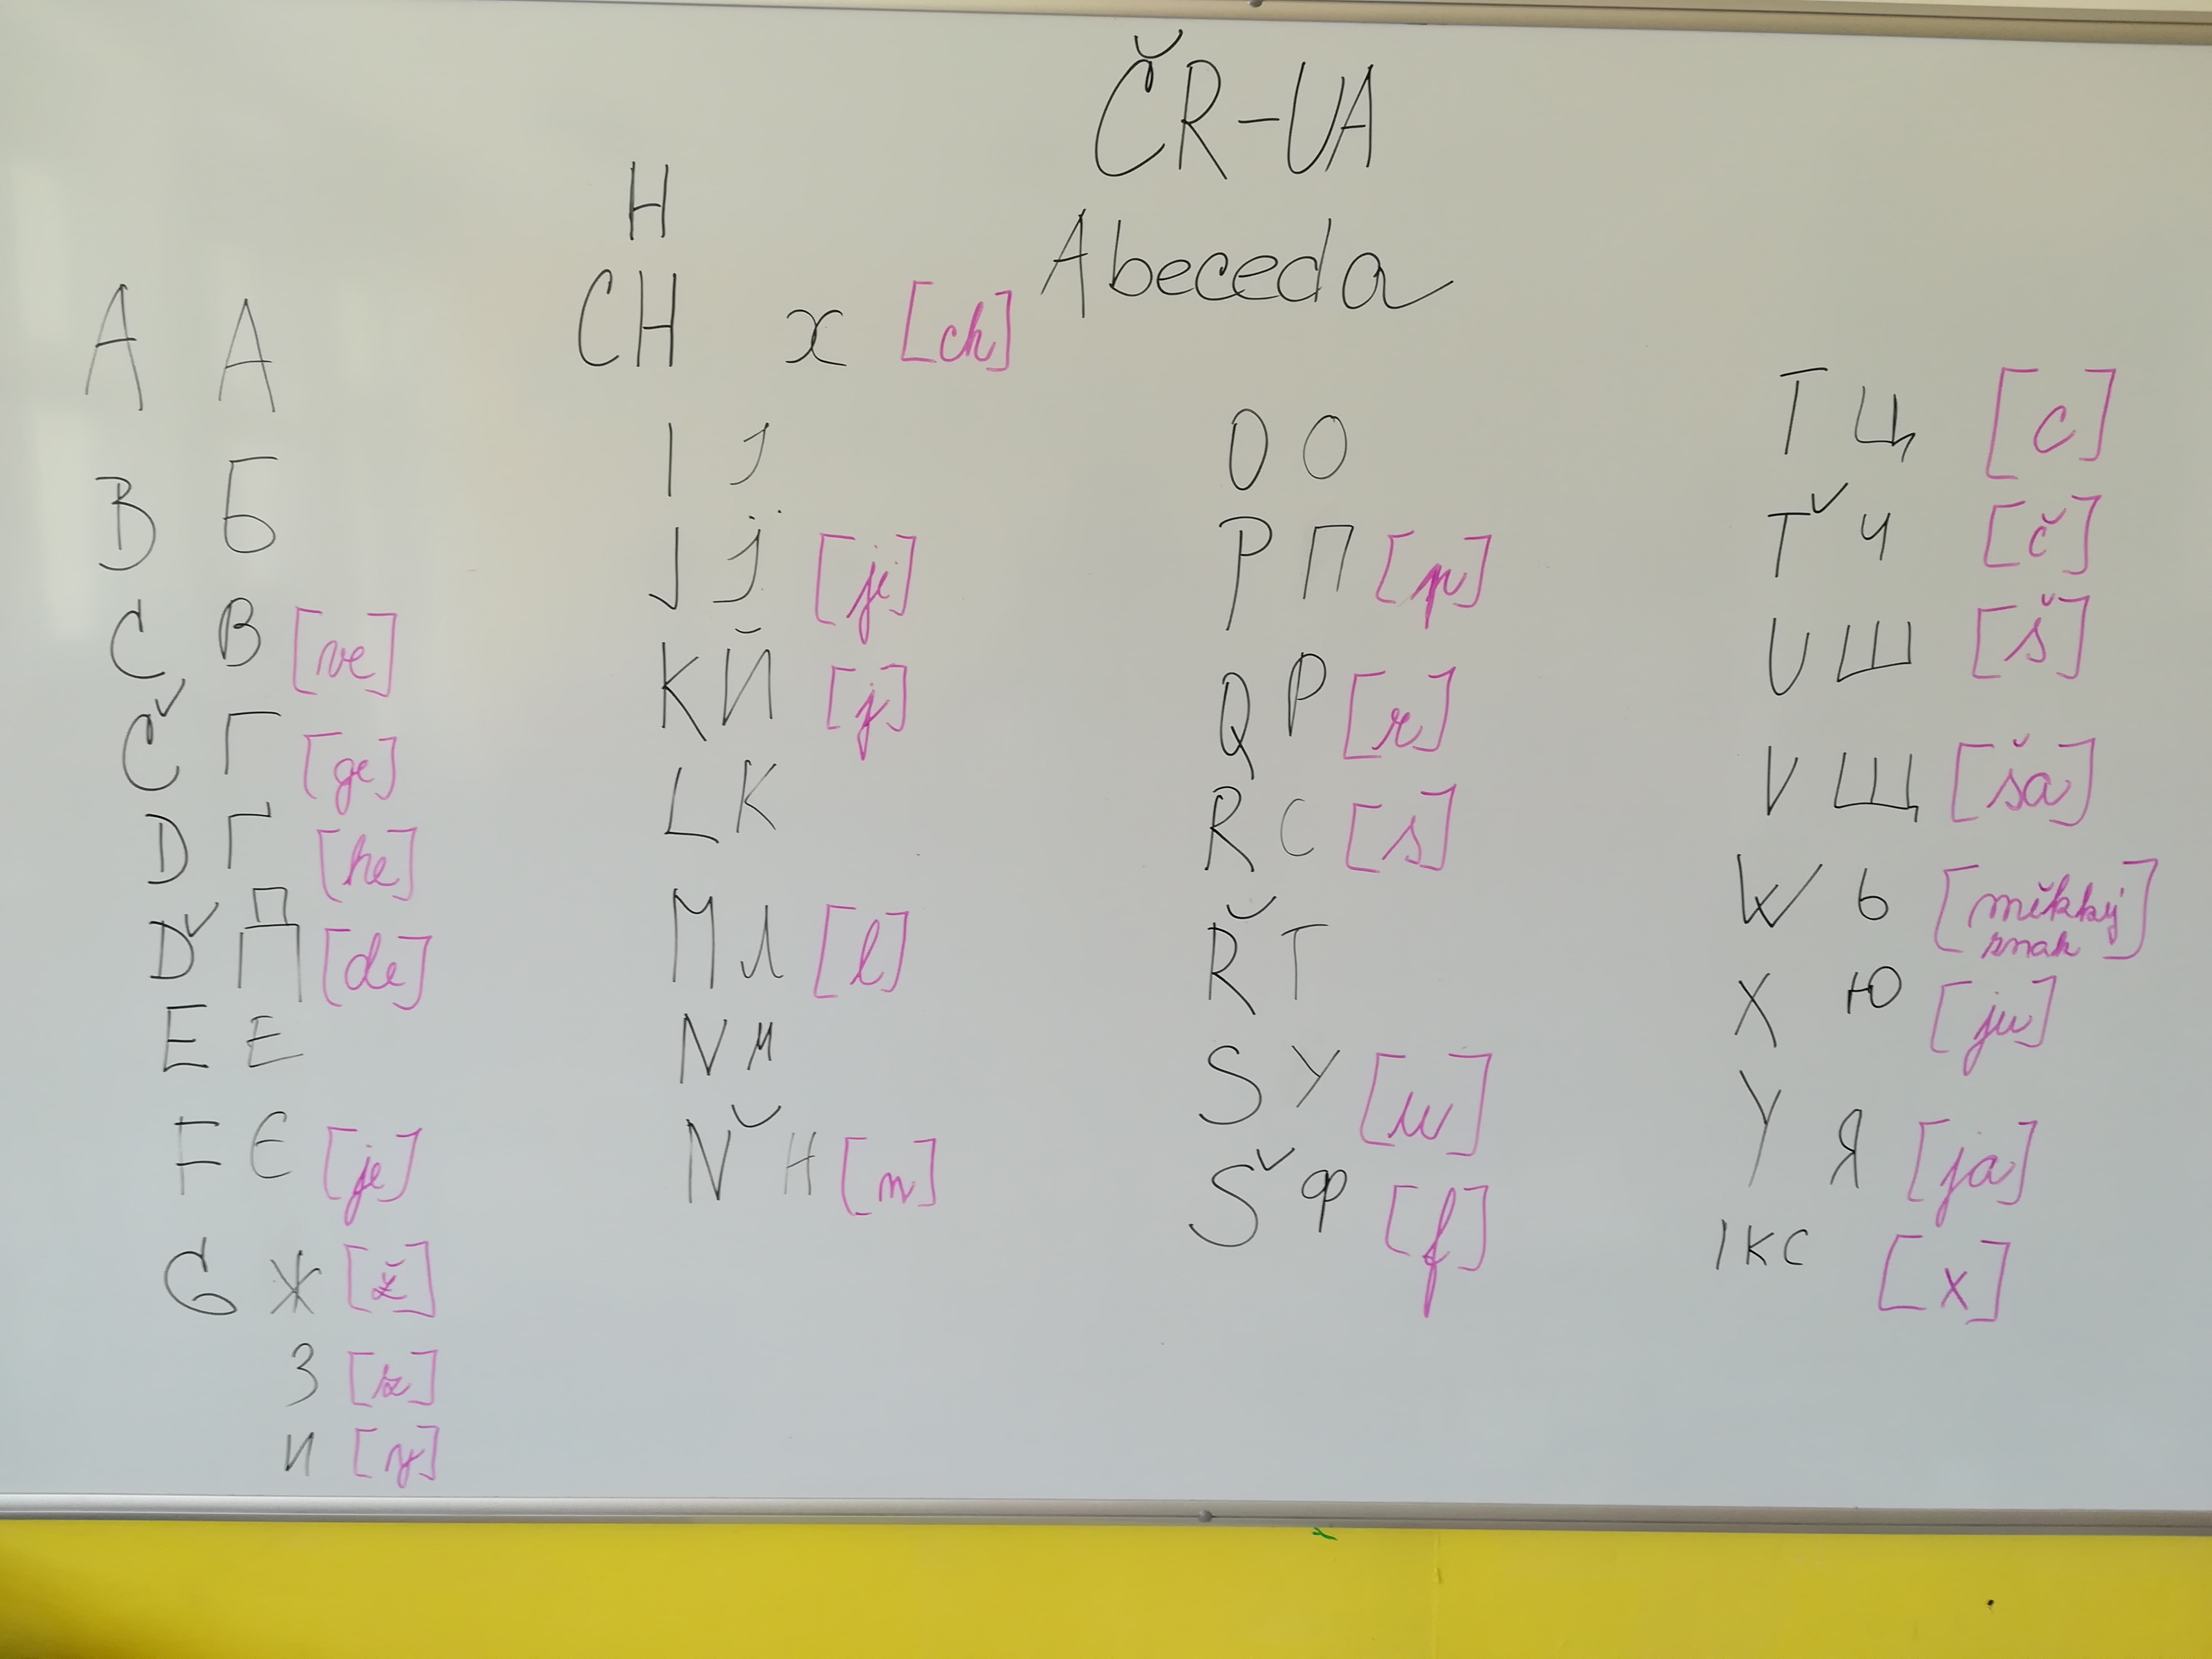 ČR-UA
Abeceda
A А
B Б
C В [ve]
Č Г [ge]
D Г [he]
Ď Д [de]
E Е
F Є [je]
G Ж [ž]
З [z]
И [y]
H
CH x [ch]
I І
J Ї [ji]
K Й [j]
L К
M Л [l]
N М
Ň Н [n]
O О
P П [p]
Q Р [r]
R С [s]
Ř Т
S У [u]
Š Ф [f]
T Ц [c]
Ť Ч [č]
U Ш [š]
V Щ [ša]
W Ь [měkký
znak]
X Ю [ju]
Y Я [ja]
ІКС [x]